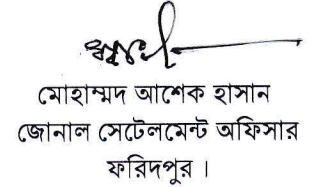 মোহাম্মদ আশেক হাসান
জোনাল সেটেলমেন্ট অফিসার
ফরিদপুর ।